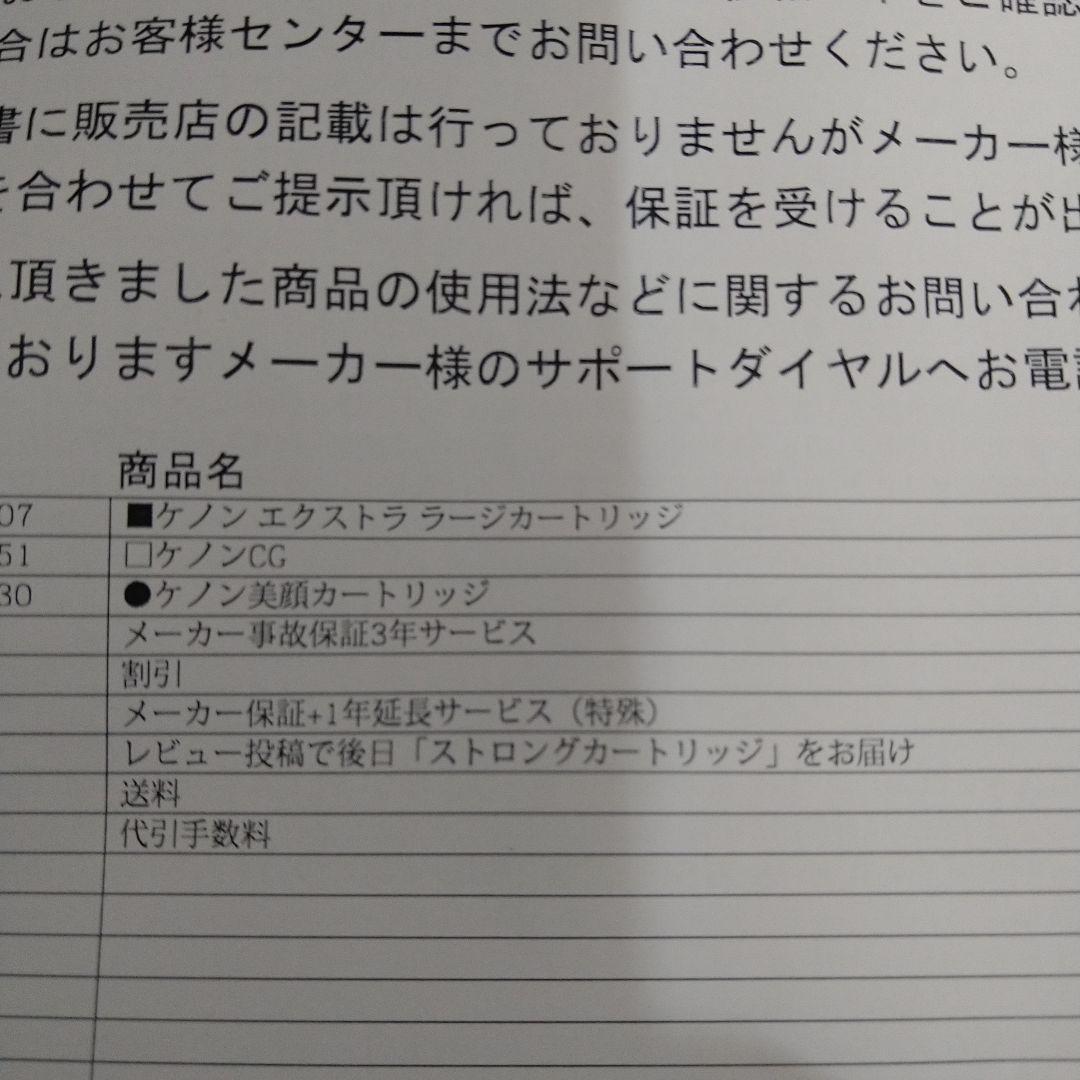 合はお客様センターまでお問い合わせください。
書に販売店の記載は行っておりませんがメーカー様
を合わせてご提示頂ければ、保証を受けることが出
頂きました商品の使用法などに関するお問い合わ
おりますメーカー様のサポートダイヤルへお電話
商品名
07 ■ケノン エクストラ ラージカートリッジ
51 □ケノンCG
30 ●ケノン美顔カートリッジ
メーカー事故保証3年サービス
割引
メーカー保証+1年延長サービス（特殊）
レビュー投稿で後日「ストロングカートリッジ」をお届け
送料
代引手数料